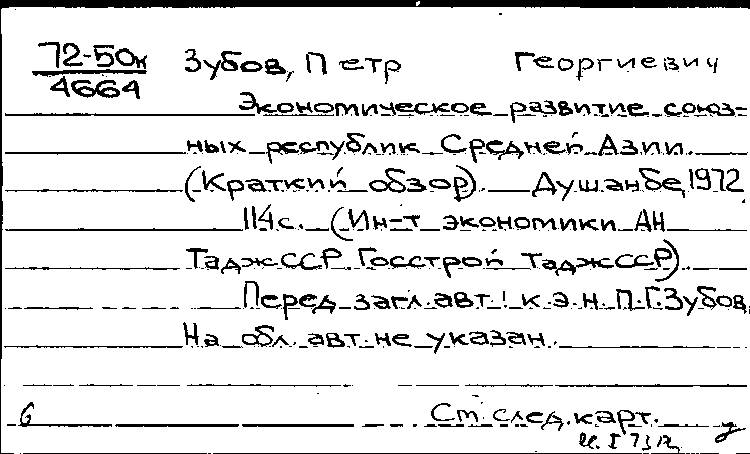 72-50к Зубов, Петр Георгиевич
4664
Экономическое развитие союз-
ных республик Средней Азии.
(Краткий обзор). Душанбе, 1972
114с. (Ин-т экономики АН
ТаджССР. Госстрой ТаджССР).
Перед загл. авт! к.э.н. П.Г.Зубов.
На обл. авт. не указан.
6 См. след. карт.